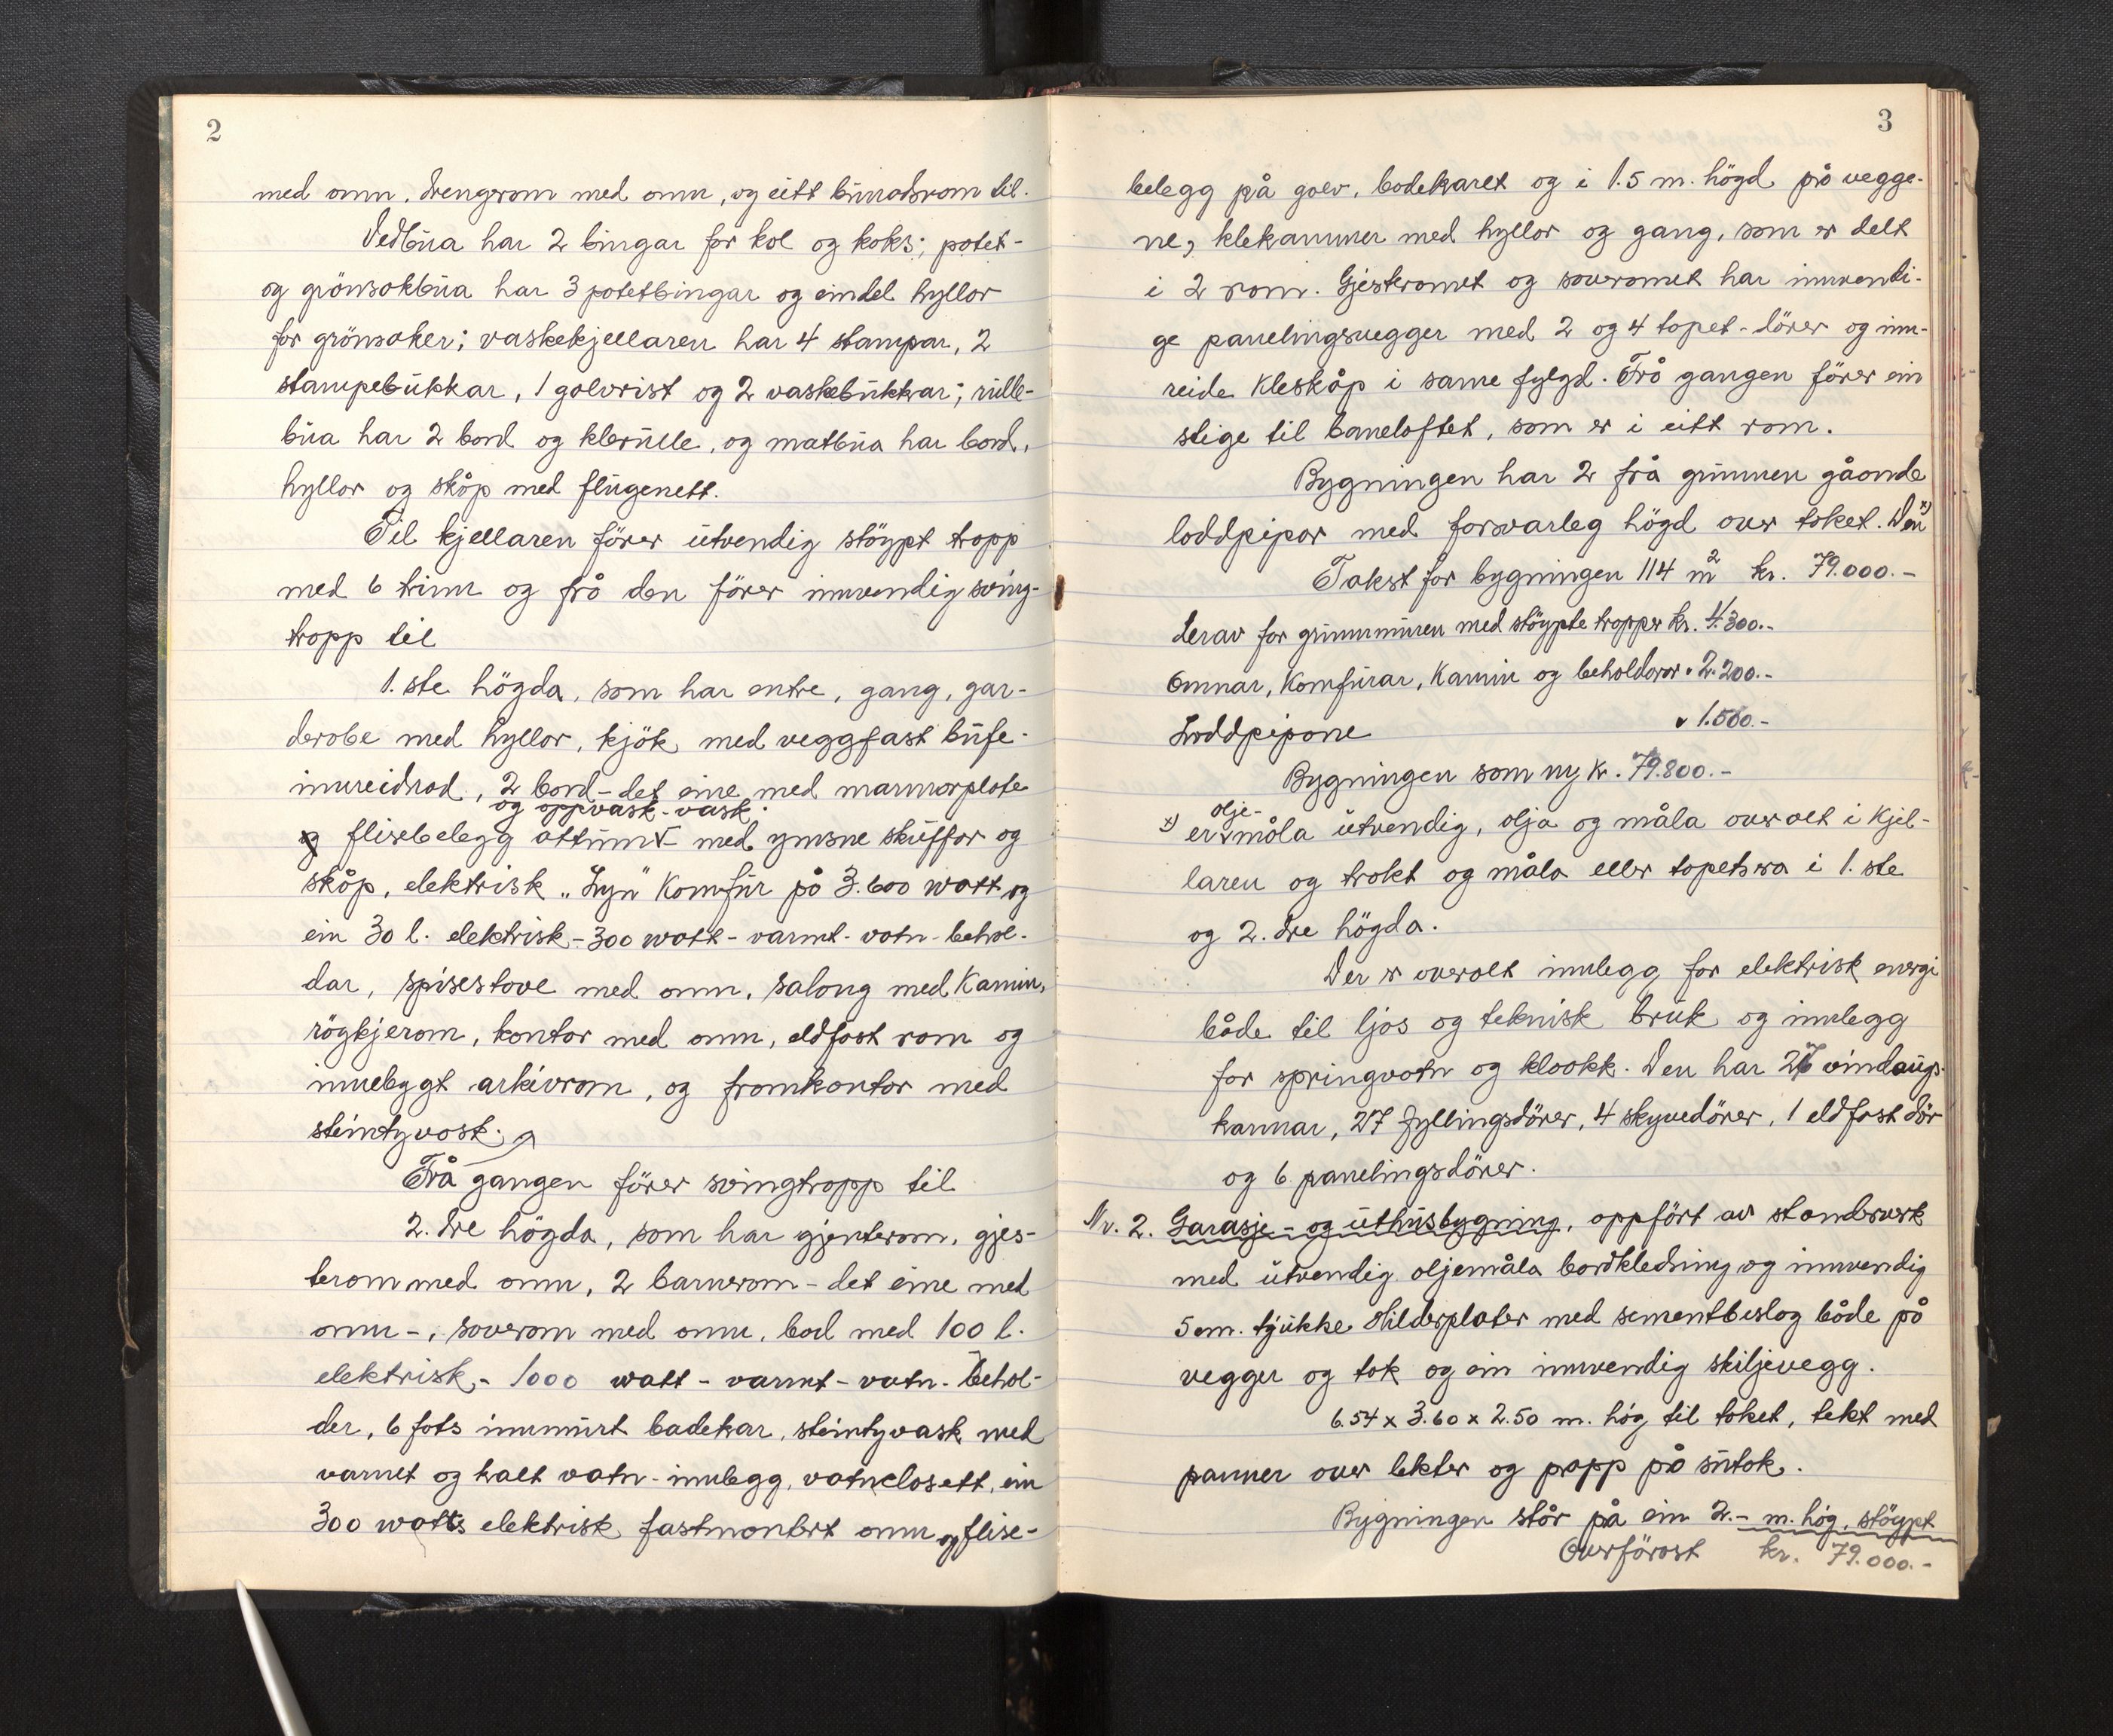 2
med omn, drengrom med omn, og eitt burodsrom til.
Vedbua har 2 bingar for kol og koks; potet-
og grönsakbua har 3 potetbingar og eindel hyllor
for grönsaker; vaskekjellaren har 4 stampar, 2
stampebukkar, 1 golvrist og 2 vaskebukkar; rulle-
bua har 2 bord og klerulle, og matbua har bord,
hyllor og skåp med flugenett.
Til kjellaren förer utvendig stöypt tropp
med 6 trinn og frå den förer innvendig sving-
tropp til
1. ste högda, som har entre, gang, gar-
derobe med hyllor, kjök med veggfast bufe-
innreidnad, 2 bord - det eine med marmorplate
og oppvask-vask
flisebelegg attunt - med ymsne skuffor og
skåp, elektrisk "Lyn" Komfur på 3.600 watt og
ein 30 l. elektrisk - 300 watt - varmt - vatn - behol-
dar, spisestove med omn, salong med Kamin,
rögkjerom, kontor med omn, eldfast rom og
innebygt arkivrom, og framkontor med
steintyvask.
Frå gangen förer svingtropp til
2. dre högda, som har gjenterom, gjes-
terom med omn, 2 barnerom - det eine med
omn -, soverom med omn, bad med 100 l.
elektrisk - 1000 watt - varmt - vatn - behol-
der, 6 fots innmurt badekar, steintyvask med
varmt og kalt vatn - innlegg, vatnclosett, ein
300 watts elektrisk fastmontert omn og flise-
3
belegg på golv, badekaret og i 1.5 m. högd på vegge-
ne, klekammer med hyllor og gang, som er delt
i 2 rom. Gjesteromet og soveromet har innvendi-
ge panelingsvegger med 2 og 4 tapet-dörer og inn-
reide Kleskåp i same fylgd. Frå gangen förer ein
stige til baneloftet, som er i eitt rom.
Bygningen har 2 frå grunnen gåande
loddpipor med forsvarleg högd over taket. Den x)
Takst for bygningen 114 m2 kr. 79.000.-
derav for grunnmuren med stöypte tropper kr. 4.300.-
Omnar, Komfurar, Kamin og beholdarar " 2.200.-
Loddpipone " 1.500.-
Bygningen som ny kr. 79.800.-
olje-
x) er måla utvendig, olja og måla overalt i Kjel-
laren og trekt og måla eller tapetsera i 1. ste
og 2. dre högda.
Der er overalt innlegg for elektrisk energi
både til ljos og teknisk bruk og innlegg
for springvatn og kloakk. Den har 27 vindaugs-
karmar, 27 fyllingsdörer, 4 skyvedörer, 1 eldfast dör
og 6 panelingsdörer.
Nr. 2. Garasje - og uthusbygning, oppfört av standerverk
med utvendig oljemåla bordkledning og innvendig
5 cm. tjukke Hilderplater med sementbeslag både på
vegger og tak og ein innvendig skiljevegg.
6.54 x 3.60 x 2.50 m. hög til taket, tekt med
panner over lekter og papp på sutak.
Bygningen står på ein 2.- m. hög, stöypt
Overförast kr. 79.000.-